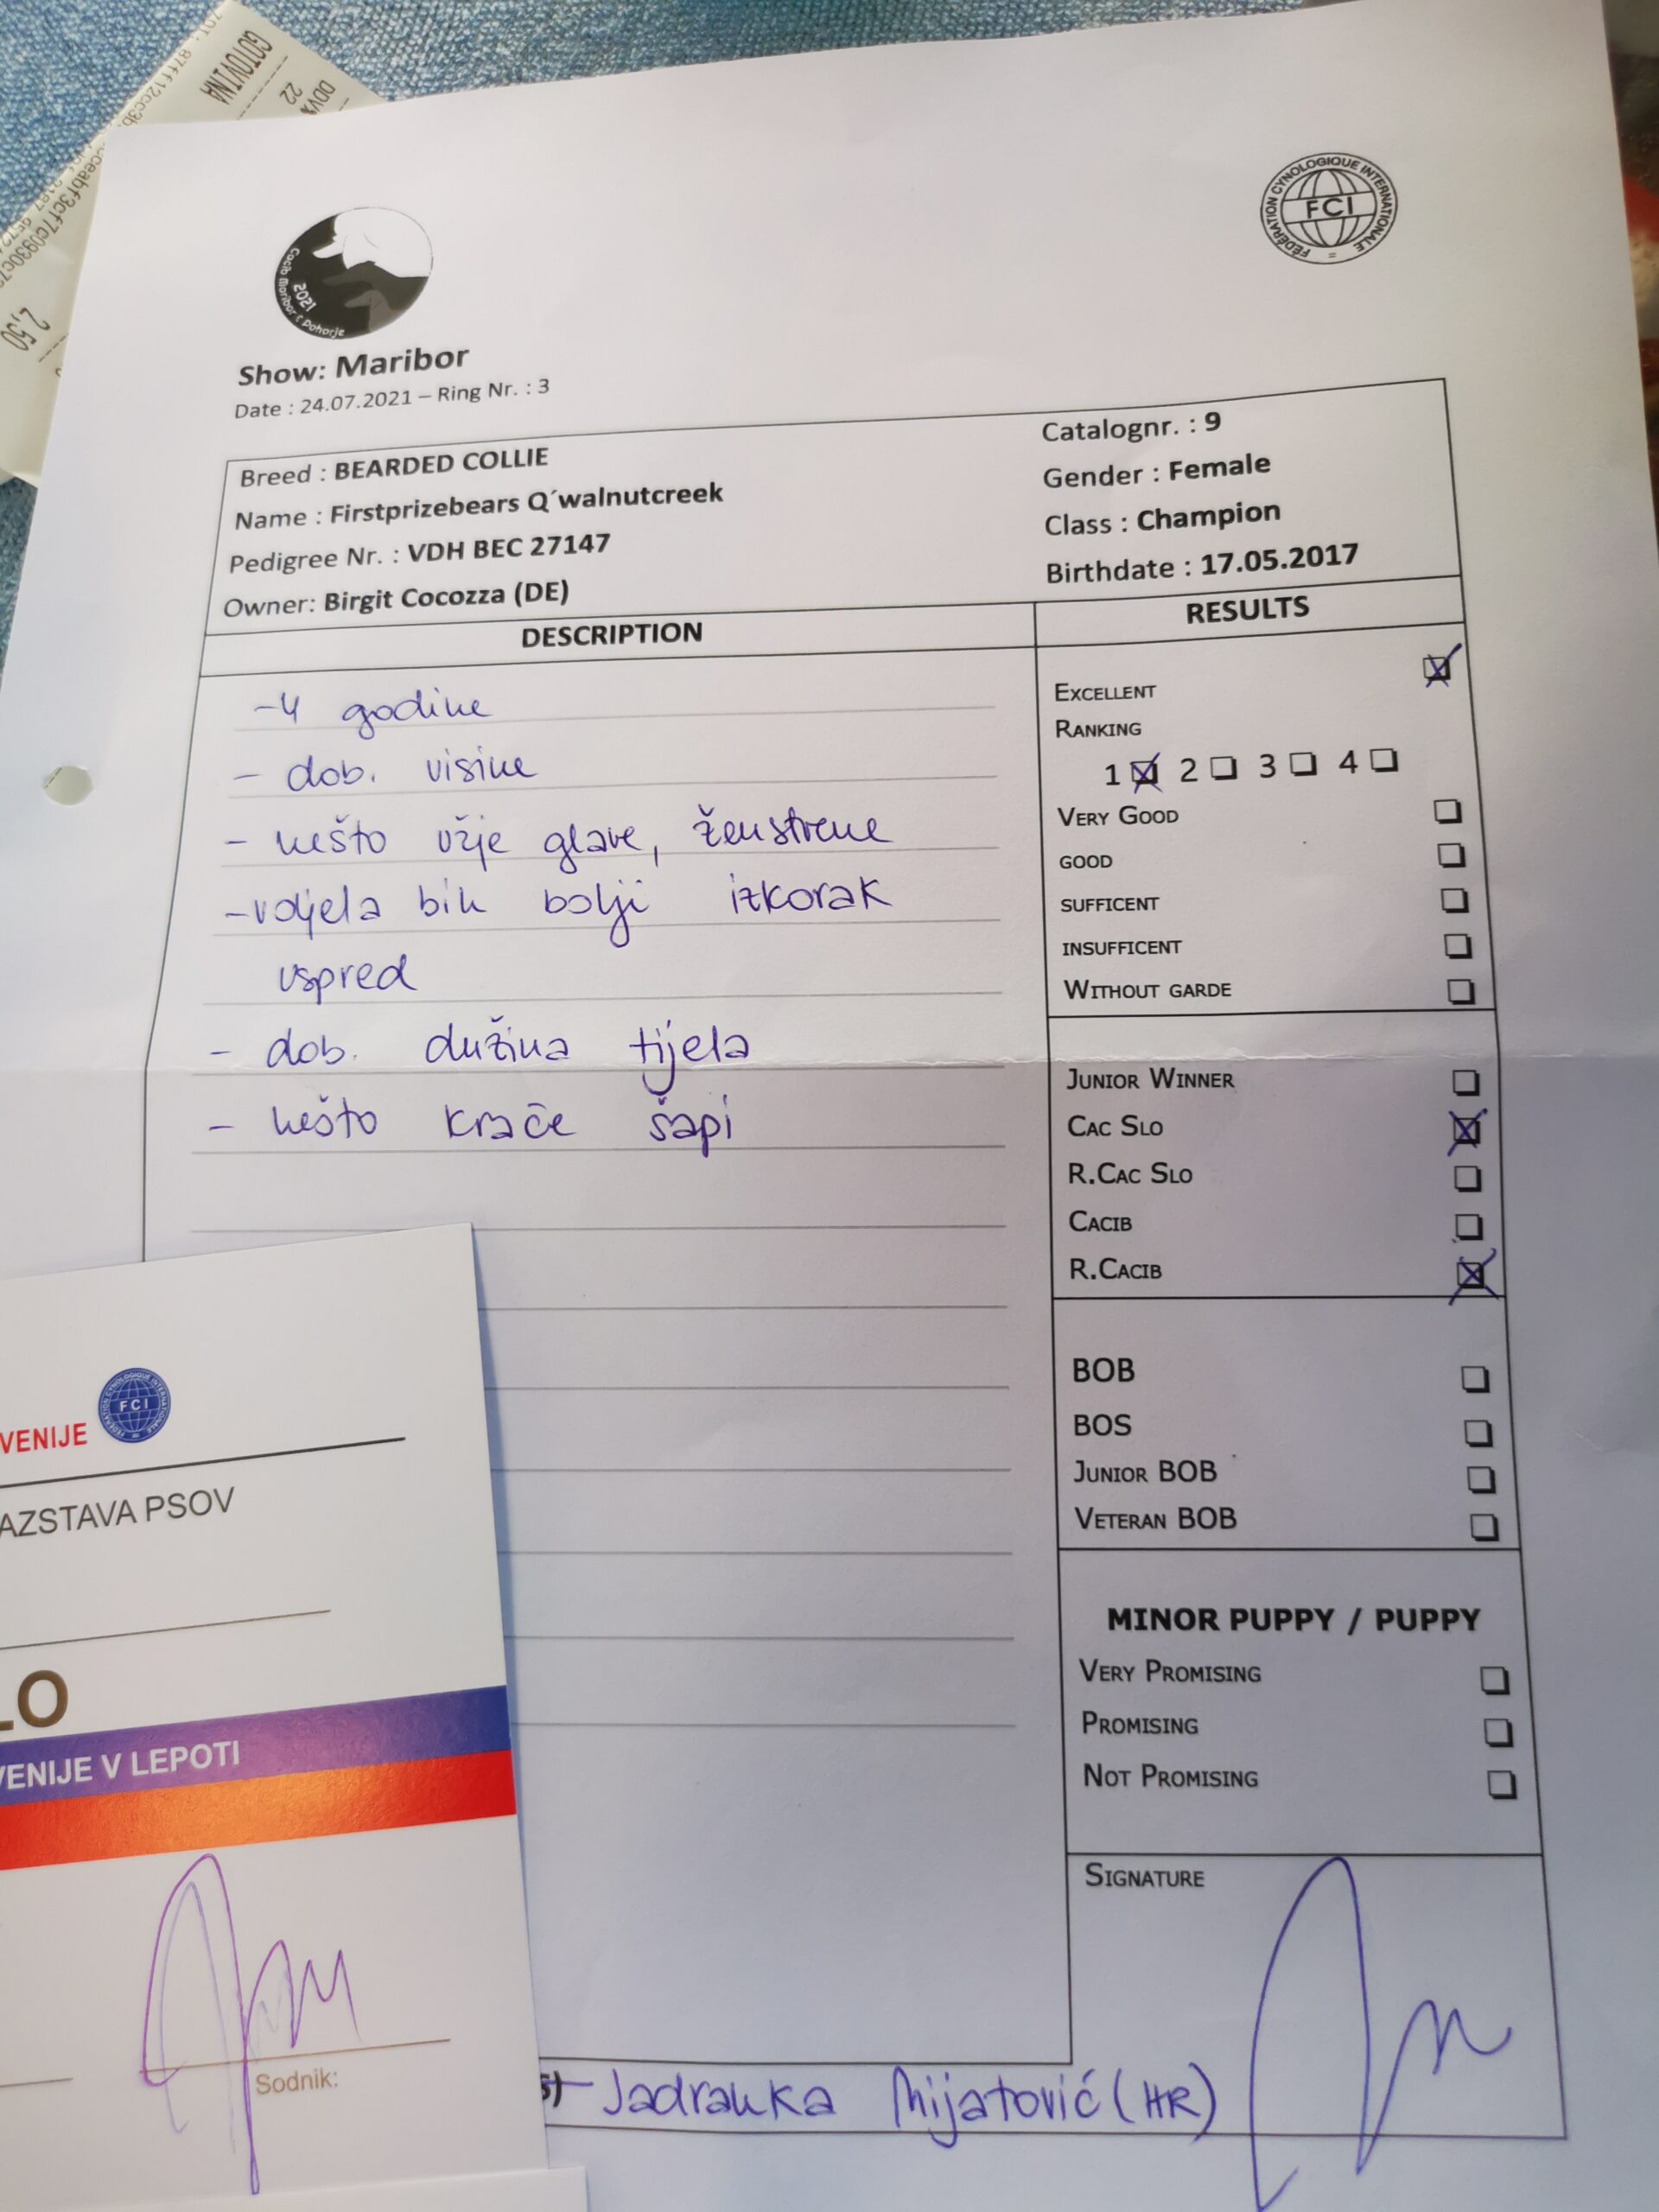 GOTOVINA
22
2,50
Cacib Maribor & Pohorje
2021
FÉDÉRATION CYNOLOGIQUE INTERNATIONALE
FCI
Show: Maribor
Date : 24.07.2021 – Ring Nr. : 3
Breed : BEARDED COLLIE
Name : Firstprizebears Q´walnutcreek
Pedigree Nr. : VDH BEC 27147
Owner: Birgit Cocozza (DE)
Catalognr. : 9
Gender : Female
Class : Champion
Birthdate : 17.05.2017
DESCRIPTION
- 4 godine
- dob. visine
- nešto užje glave, ženstvene
- voljela bih bolji izkorak
uspred
- dob. dužina tijela
- nešto krače šapi
RESULTS
EXCELLENT
RANKING
1 2 3 4
VERY GOOD
GOOD
SUFFICENT
INSUFFICENT
WITHOUT GARDE
JUNIOR WINNER
CAC SLO
R.CAC SLO
CACIB
R.CACIB
BOB
BOS
JUNIOR BOB
VETERAN BOB
MINOR PUPPY / PUPPY
VERY PROMISING
PROMISING
NOT PROMISING
SIGNATURE
Jadranka Mijatović (HR)
VENIJE
FCI
AZSTAVA PSOV
LO
VENIJE V LEPOTI
Sodnik: